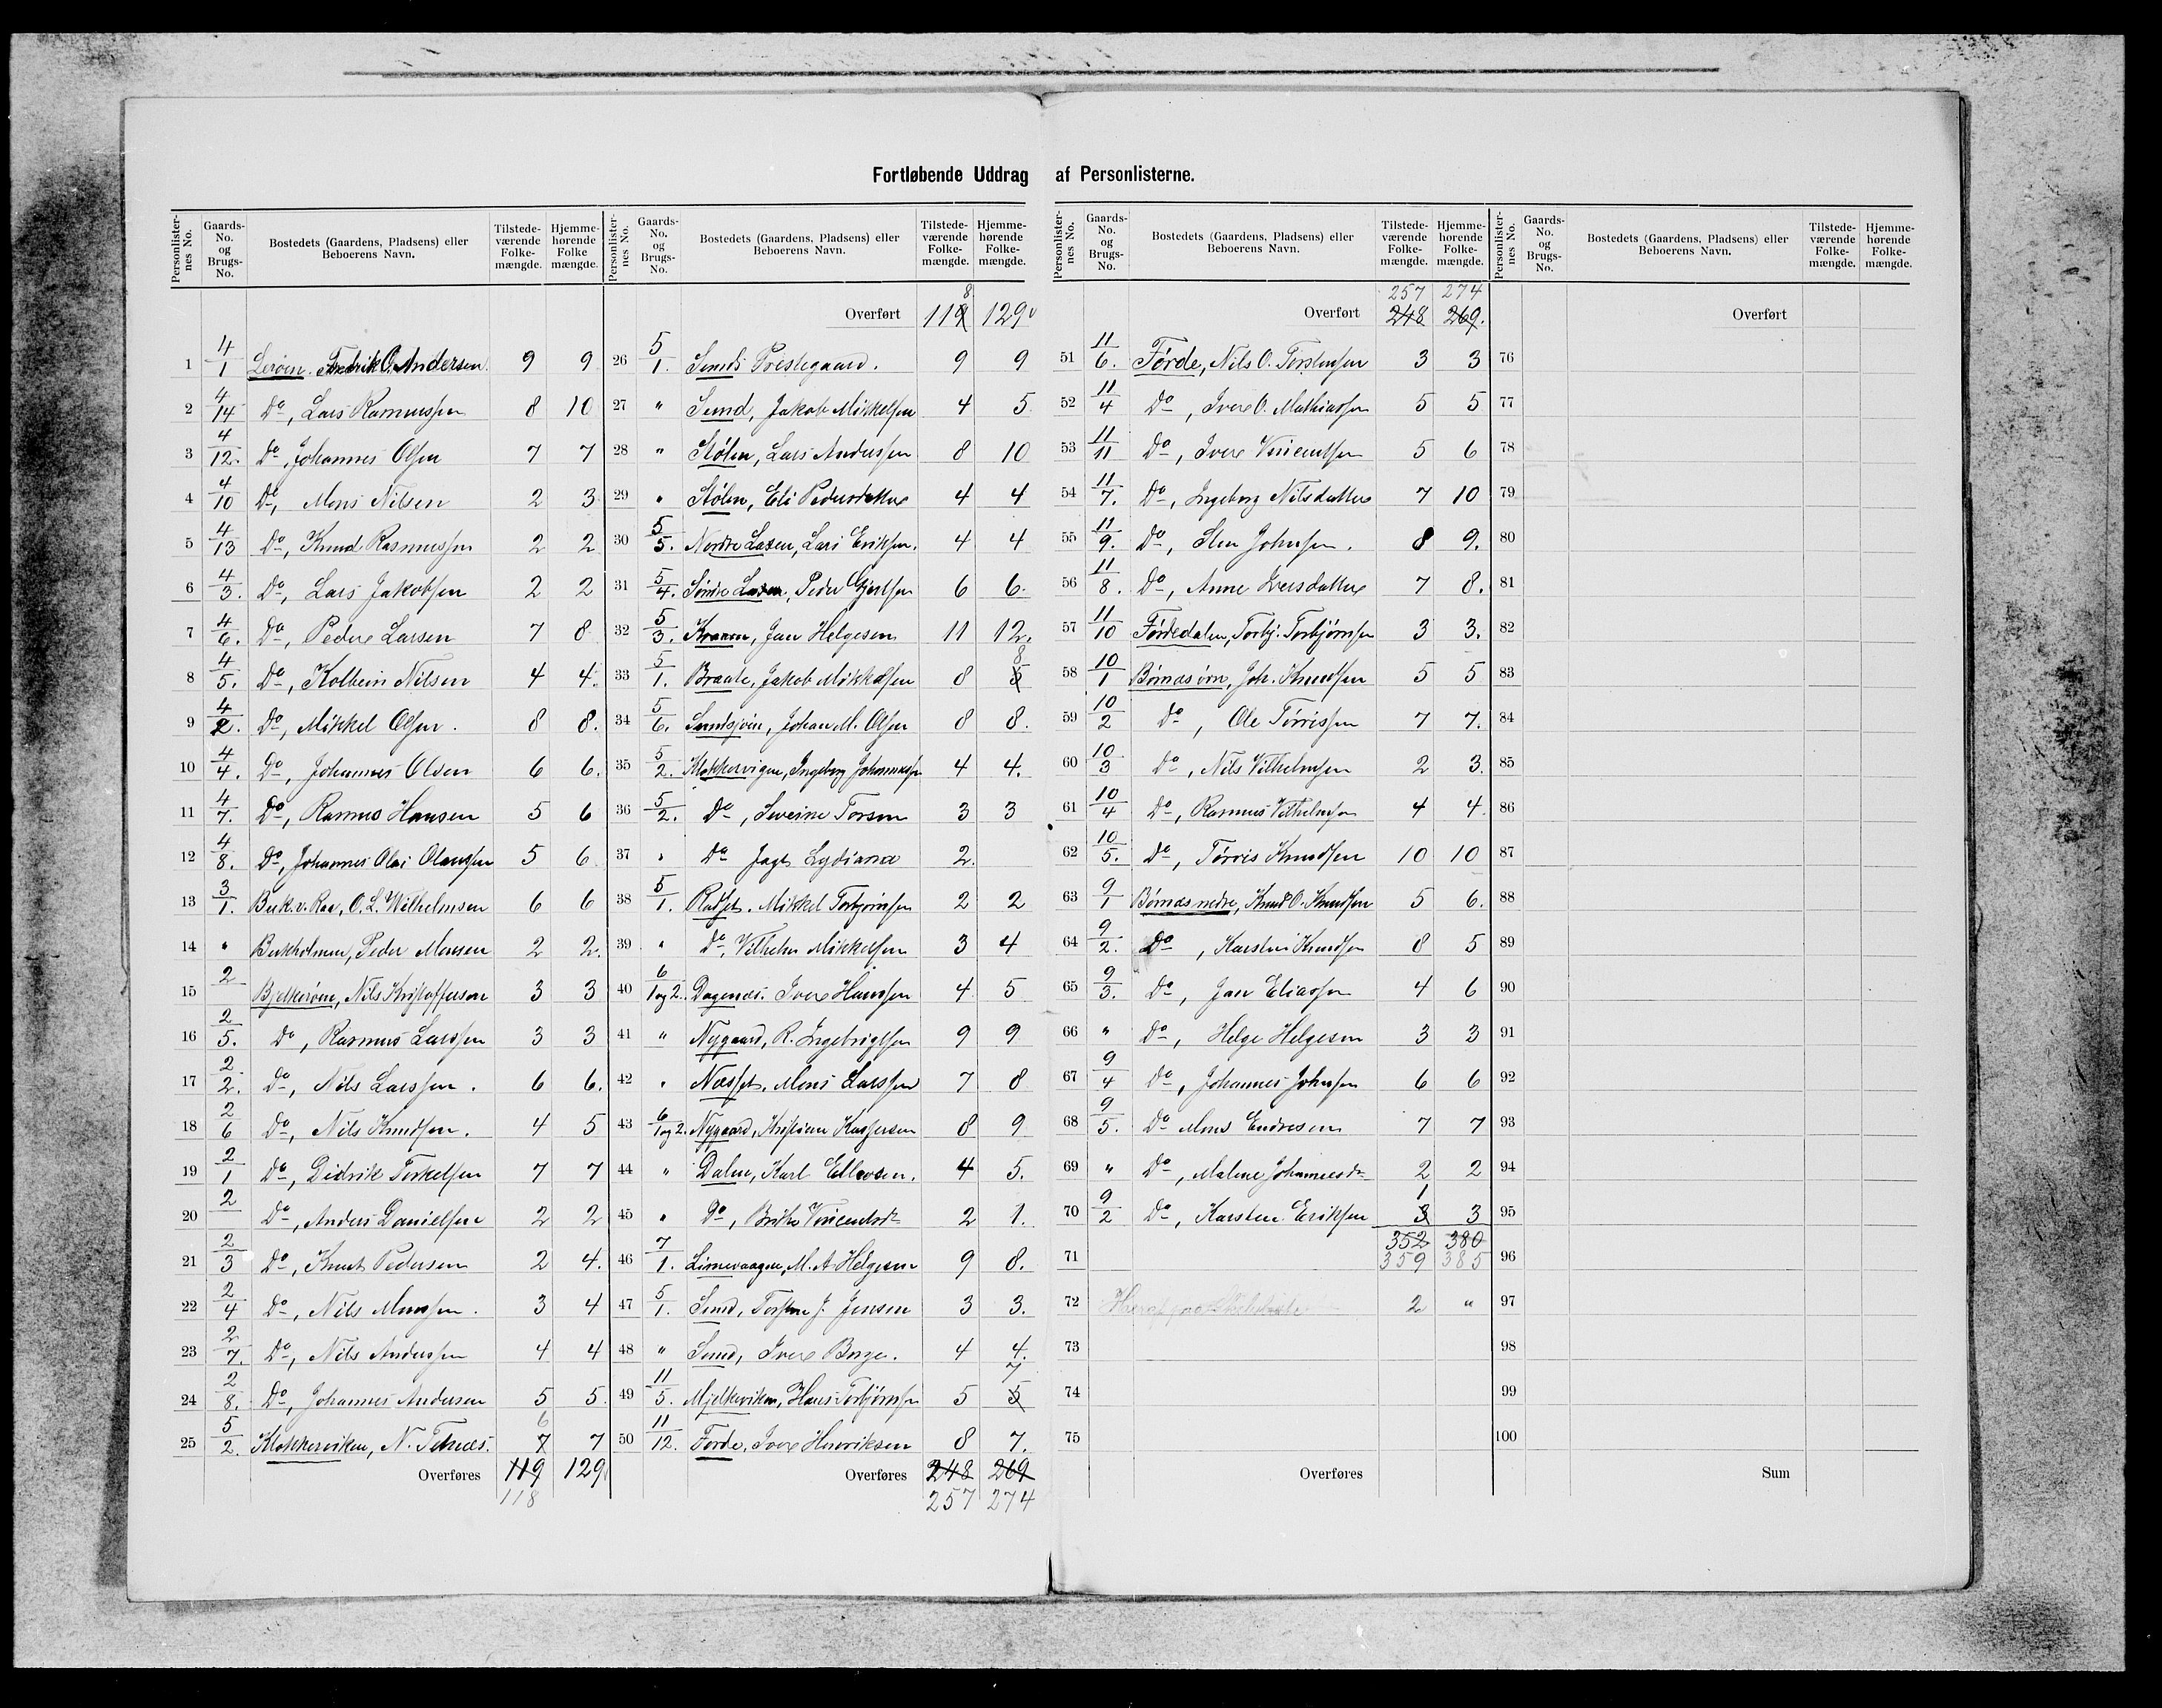 Fortløbende Uddrag af Personlisterne.
Personlisternes No. Gaards-No. og Brugs-No. Bostedets (Gaardens, Pladsens) eller Beboerens Navn. Tilstedeværende Folkemængde. Hjemmehørende Folkemængde.
1 4/1 Lerøen. Fredrik O. Andersen. 9 9
2 4/14 Do, Lars Rasmussen 8 10
3 4/12. Do, Johannes Olsen 7 7
4 4/10 Do, Mons Nilsen 2 3
5 4/13 Do, Knud Rasmussen 2 2
6 4/3. Do, Lars Jakobsen 2 2
7 4/6. Do, Peder Larsen 7 8
8 4/5. Do, Kolbein Nilsen 4 4.
9 4/2. Do, Mikkel Olsen. 8 8.
10 4/4. Do, Johannes Olsen 6 6.
11 4/7. Do, Rasmus Hansen 5 6
12 4/8. Do, Johannes Olai Olaussen 5 6
13 3/1. Buk. v. Rae, O. L. Wilhelmsen 6 6
14 " Bukholmen, Peder Monsen 2 2.
15 2 Bjelkerøen, Nils Kristofferson 3 3
16 2/5. Do, Rasmus Larssen 3 3
17 2/2. Do, Nils Larssen. 6 6.
18 2/6 Do, Nils Knudsen. 4 5
19 2/1 Do, Didrik Terkelsen 7 7
20 2 Do, Anders Danielsen 2 2
21 2/3 Do, Knut Pedersen 2 4.
22 2/4 Do, Nils Monssen. 3 4
23 2/7. Do, Nils Anderssen 4 4
24 2/8. Do, Johannes Andersen 5 5.
25 5/2. Klokkerviken, N. 6 7 7
Overføres 119 129
118
Overført 119 8 129
26 5/1. Sunds Prestegaard. 9 9
27 " Sund, Jakob Mikkelsen 4 5
28 " Stølen, Lars Anderssen 8 10
29 " Stølen, Eli Pedersdatter 4 4
30 5/5. Nordre Laxen, Lars Eriksen. 4 4
31 5/4. Søndre Laxen, Peder Gjertsen 6 6.
32 5/3. Kraaen, Jan Helgesen 11 12.
33 5/1. Braate, Jakob Mikkelsen 8 8 5
34 5/6. Sundsjøen, Johan M. Olsen 8 8.
35 5/2. Klokkervigen, Ingeborg 4 4.
36 5/2. Do, Severine Torsen 3 3
37 " Do Jagt Lydiana 2.
38 5/1. Mikkel Torbjørnsen 2 2
39 " Do, Vilhelm Mikkelsen 3 4
40 6/1og2. Dagenæs. Iver Hanssen 4 5
41 " Nygaard, R. Ingebrigtsen 9 9
42 " Næsset, Mons Larssen 7 8
43 6/1og2. Nygaard, Kristian Kaspersen 8 9
44 " Dalen, Karl Ellevsen. 4 5.
45 " Do, Britha Vincentsdr 2 1.
46 7/1. Limevaagen, M. A. Helgesen 9 8.
47 5/1. Sund, Torsten J. Jensen 3 3.
48 " Sund, Iver Borge. 4 4.
49 11/5. Mjelkeviken, Hans Torbjørnsen 5 7 5
50 11/12. Førde, Iver Henriksen 8 7.
Overføres 248 269
257 274
257 274
Overført 248 269.
51 11/6. Førde, Nils O. Torstensen 3 3
52 11/4 Do, Iver O. Mathiassen 5 5
53 11/11 Do, Iver Vincentsen 5 6
54 11/7. Do, Ingeborg Nilsdatter 7 10
55 11/9. Do, Sten Johnsen. 8 9.
56 11/8. Do, Anne Iversdatter 7 8.
57 11/10 Førdedalen, Torbj. Torbjørnsen 3 3.
58 10/1 Børnæs øvre, Joh. Knudsen 5 5
59 10/2 Do, Ole Tørrissen 7 7.
60 10/3 Do, Nils Vilhelmsen 2 3.
61 10/4 Do, Rasmus Vilhelmsen 4 4
62 10/5. Do, Tørris Knudsen 10 10
63 9/1 Børnæs nedre, Knud O. Knudsen 5 6.
64 9/2. Do, Karsten Knudsen 8 5
65 9/3. Do, Jan Eliassen 4 6
66 " Do, Helge Helgesen 3 3
67 9/4 Do, Johannes Johnsen 6 6
68 9/5. Do Mons Endresen 7 7
69 " Do, Malene Johannesdr 2 2
70 9/2 Do, Karsten Eriksen 1 3 3
352 380
71 359 385
72 Heraf paa 2 "
73
74
75
Overføres
Personlisternes No. Gaards-No. og Brugs-No. Bostedets (Gaardens, Pladsens) eller Beboerens Navn. Tilstedeværende Folkemængde. Hjemmehørende Folkemængde.
Overført
76
77
78
79
80
81
82
83
84
85
86
87
88
89
90
91
92
93
94
95
96
97
98
99
100
Sum